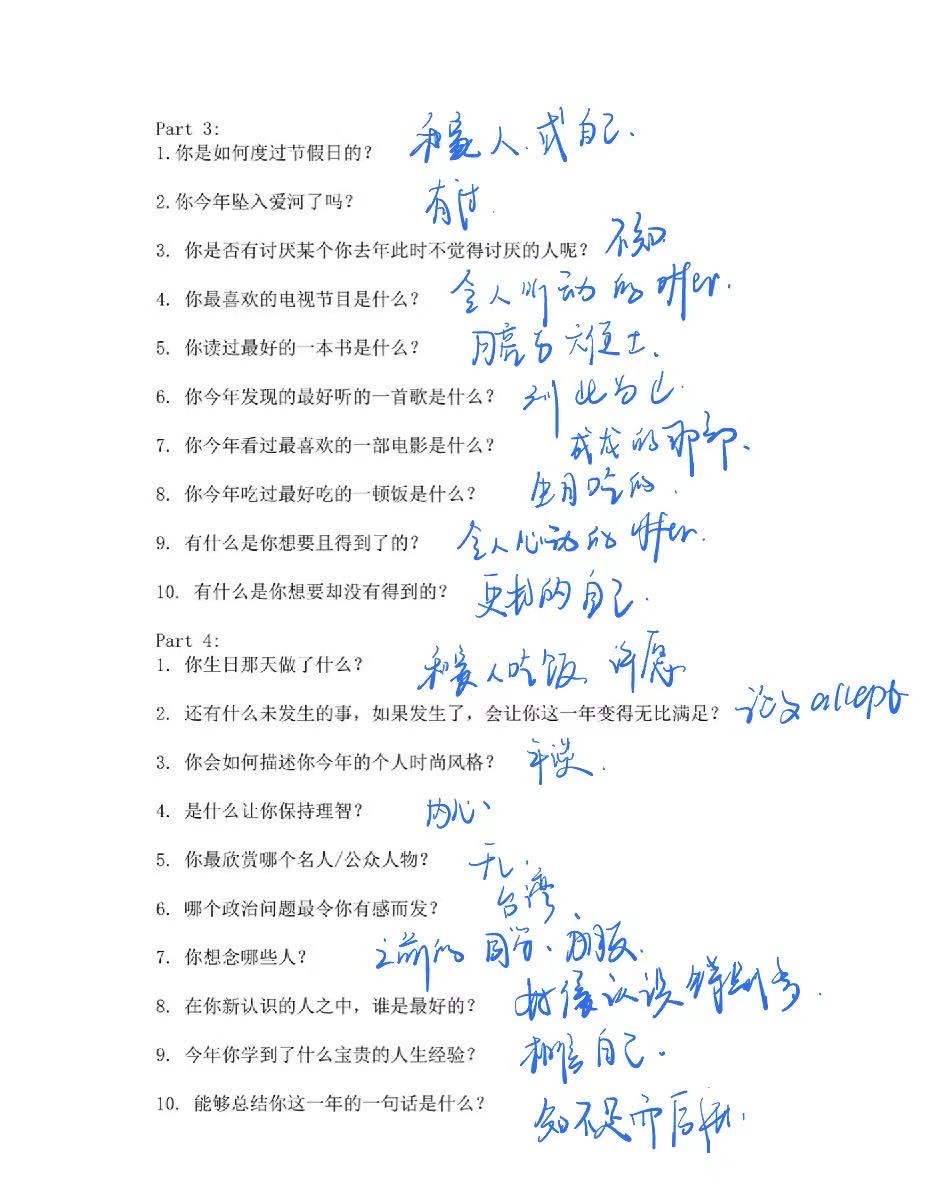 Part 3:
1.你是如何度过节假日的? 和家人.或自己.
2.你今年坠入爱河了吗? 有过.
3. 你是否有讨厌某个你去年此时不觉得讨厌的人呢?
4. 你最喜欢的电视节目是什么? 令人心动的offer.
5. 你读过最好的一本书是什么? 月亮与六便士.
6. 你今年发现的最好听的一首歌是什么? 到此为止.
7. 你今年看过最喜欢的一部电影是什么? 成龙的那部.
8. 你今年吃过最好吃的一顿饭是什么? 生日吃的.
9. 有什么是你想要且得到了的? 令人心动的offer.
10. 有什么是你想要却没有得到的? 更好的自己.
Part 4:
1. 你生日那天做了什么? 和家人吃饭 许愿
2. 还有什么未发生的事，如果发生了，会让你这一年变得无比满足? 论文accept
3. 你会如何描述你今年的个人时尚风格? 平淡.
4. 是什么让你保持理智? 内心
5. 你最欣赏哪个名人/公众人物? 无.
6. 哪个政治问题最令你有感而发? 台湾
7. 你想念哪些人? 之前的同学、朋友.
8. 在你新认识的人之中，谁是最好的? 好像认识
9. 今年你学到了什么宝贵的人生经验? 相信自己.
10. 能够总结你这一年的一句话是什么? 知不足而后进.